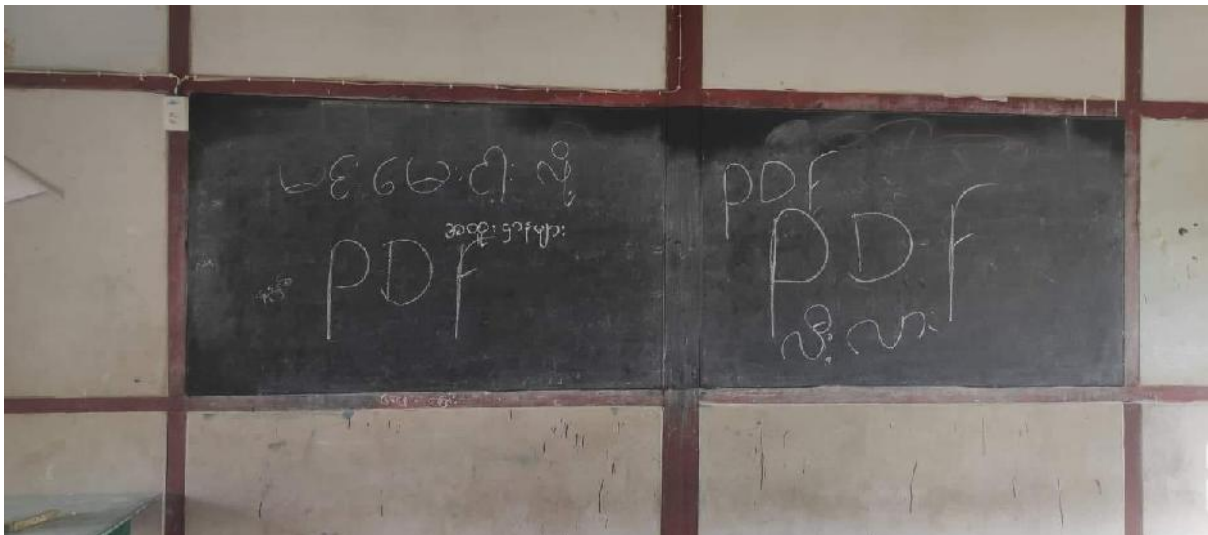 မင်းမေငါးလို့
အထူးဌာနများ
PDF
PDF
PDF
လိုးလား